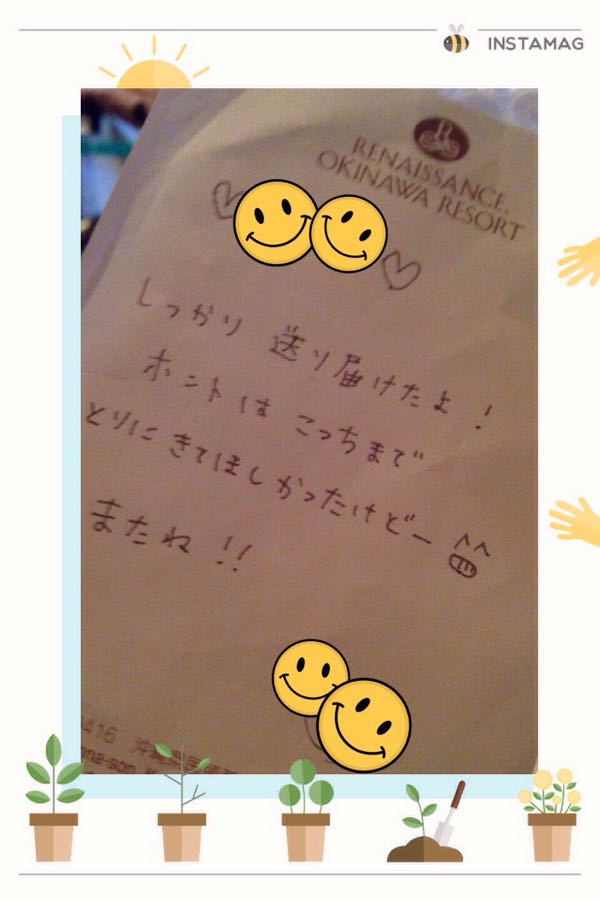 INSTAMAG
R
RENAISSANCE
OKINAWA RESORT
しっかり 送り届けたよ!
ホントは こっちまで
とりに きてほしかったけどー
またね!!
416 沖縄県